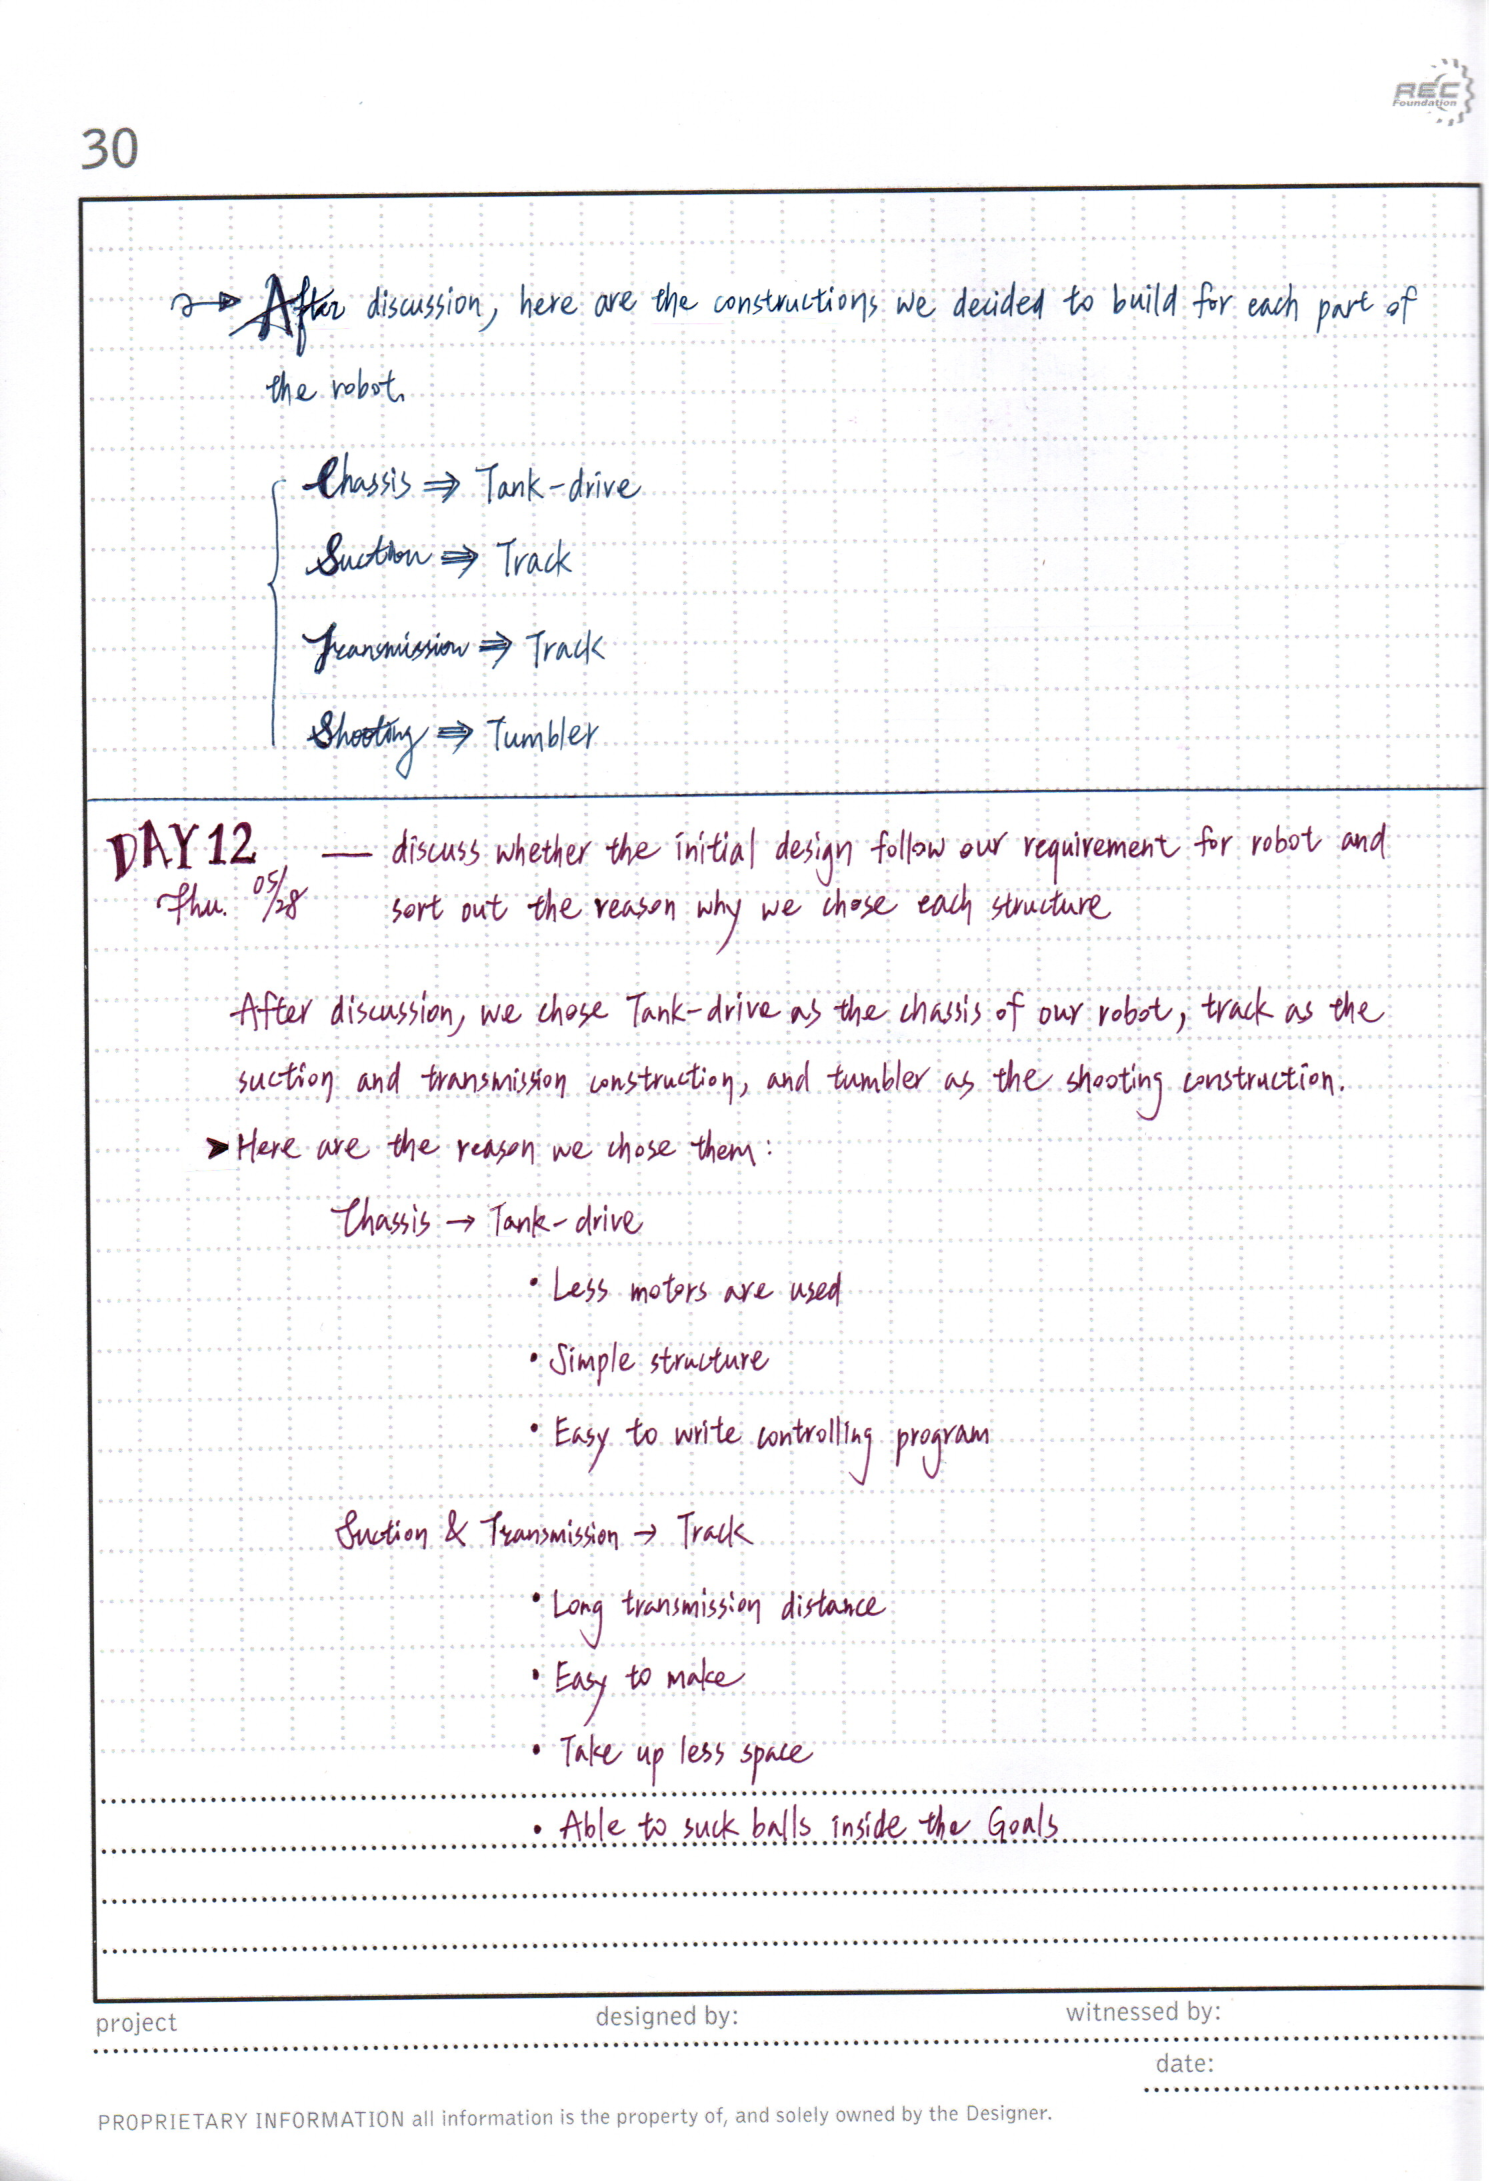 REC
Foundation
30
After discussion, here are the constructions we decided to build for each part of
the robot.
Chassis ⇒ Tank-drive
Suction ⇒ Track
Transmission ⇒ Track
Shooting ⇒ Tumbler
DAY 12 — discuss whether the initial design follow our requirement for robot and
Thu. 05/28 sort out the reason why we chose each structure
After discussion, we chose Tank-drive as the chassis of our robot, track as the
suction and transmission construction, and tumbler as the shooting construction.
➤ Here are the reason we chose them:
Chassis → Tank-drive
• Less motors are used
• Simple structure
• Easy to write controlling program
Suction & Transmission → Track
• Long transmission distance
• Easy to make
• Take up less space
• Able to suck balls inside the Goals
project designed by: witnessed by:
date:
PROPRIETARY INFORMATION all information is the property of, and solely owned by the Designer.